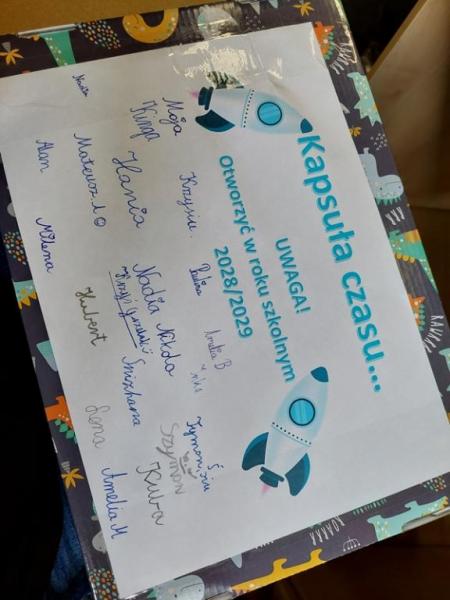 Kapsuła czasu...
UWAGA!
Otworzyć w roku szkolnym
2028/2029
Maja
Krzysiu.
Paulina
Amelia B
Tymon
Kinga
Szymon
Kuba
Hania
Nadia Nikola
Snizhana
Amelia M
Mateusz.
Hubert
Lena
Alan
Milena